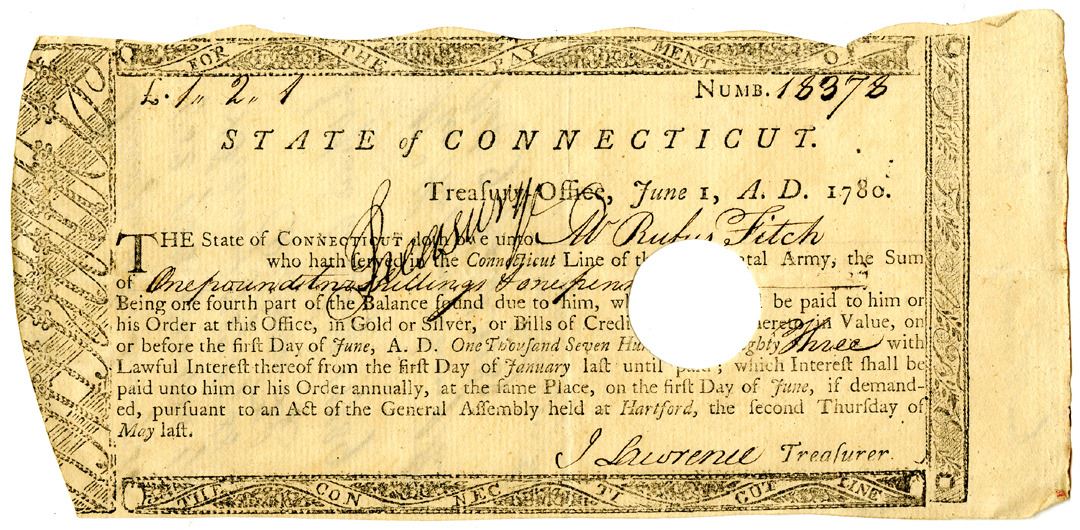 FOR THE PAYMENT O
£. 1,, 2,, 1 NUMB. 18378
STATE of CONNECTICUT.
Treaſury-Office, June 1, A. D. 1780.
THE State of CONNECTICUT doth owe unto Mr Rufus Fitch
who hath ſerved in the Connecticut Line of th tal Army, the Sum
of One pound two Shillings & one penny
Being one fourth part of the Balance found due to him, wh be paid to him or
his Order at this Office, in Gold or Silver, or Bills of Credi hereto in Value, on
or before the firſt Day of June, A. D. One Thouſand Seven Hun ighty Three with
Lawful Intereſt thereof from the firſt Day of January laſt until paid; which Intereſt ſhall be
paid unto him or his Order annually, at the ſame Place, on the firſt Day of June, if demand-
ed, purſuant to an Act of the General Aſſembly held at Hartford, the ſecond Thurſday of
May laſt.
J Lawrence Treaſurer.
THE CONNECTICUT LINE